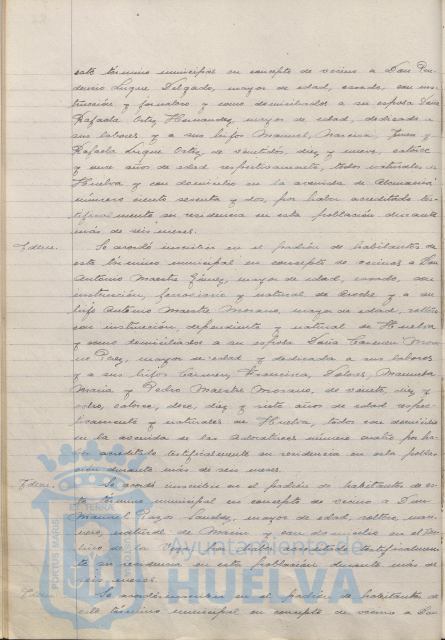 este término municipal en concepto de vecino a Don Pru-
dencio Luque Delgado, mayor de edad, casado, con ins-
trucción y jornalero y como domiciliados a su esposa Doña
Rafaela Ortiz Hernandez, mayor de edad, dedicada a
sus labores y a sus hijos Manuel, Marina, Juan y
Rafaela Luque Ortiz, de veintidós, diez y nueve, catorce
y once años de edad respectivamente, todos naturales de
Huelva y con domicilio en la avenida de Alemania
número ciento sesenta y dos, por haber acreditado tes-
tificalmente su residencia en esta población durante
más de seis meses.
Idem. Se acordó inscribir en el padrón de habitantes de
este término municipal en concepto de vecinos a Don
Antonio Maestre Gómez, mayor de edad, casado, con
instrucción, ferroviario y natural de Aroche y a su
hijo Antonio Maestre Morano, mayor de edad, soltero
con instrucción, dependiente y natural de Huelva
y como domiciliados a su esposa Doña Carmen Mora-
no Paez, mayor de edad y dedicada a sus labores
y a sus hijos Carmen, Francisca, Dolores, Manuela
María y Pedro Maestre Morano, de veinte, diez y
ocho, catorce, doce, diez y siete años de edad respec-
tivamente y naturales de Huelva, todos con domicilio
en la avenida de las Adoratrices número cuatro por ha-
ber acreditado testificalmente su residencia en esta pobla-
ción durante más de seis meses.
Idem. Se acordó inscribir en el padrón de habitantes de es-
te término municipal en concepto de vecino a Don
Manuel Sanchez, mayor de edad, soltero,
natural de y con domicilio en el
de la por haber acreditado testificalmen-
te su residencia en esta población durante más de
seis meses.
Idem. Se acordó inscribir en el padrón de habitantes de
este término municipal en concepto de vecino a Don
PORTUS MARIS
ET TERRÆ
Ayuntamiento de
HUELVA